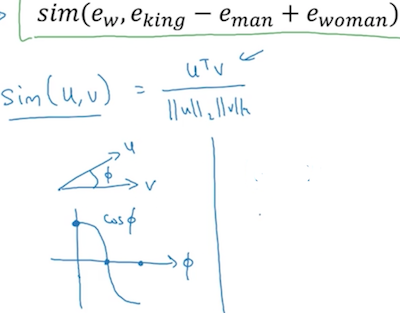 sim(e_w, e_king − e_man + e_woman)
sim(u,v) = uᵀv / ||u||₂||v||₂
u
ϕ
v
cos ϕ
ϕ